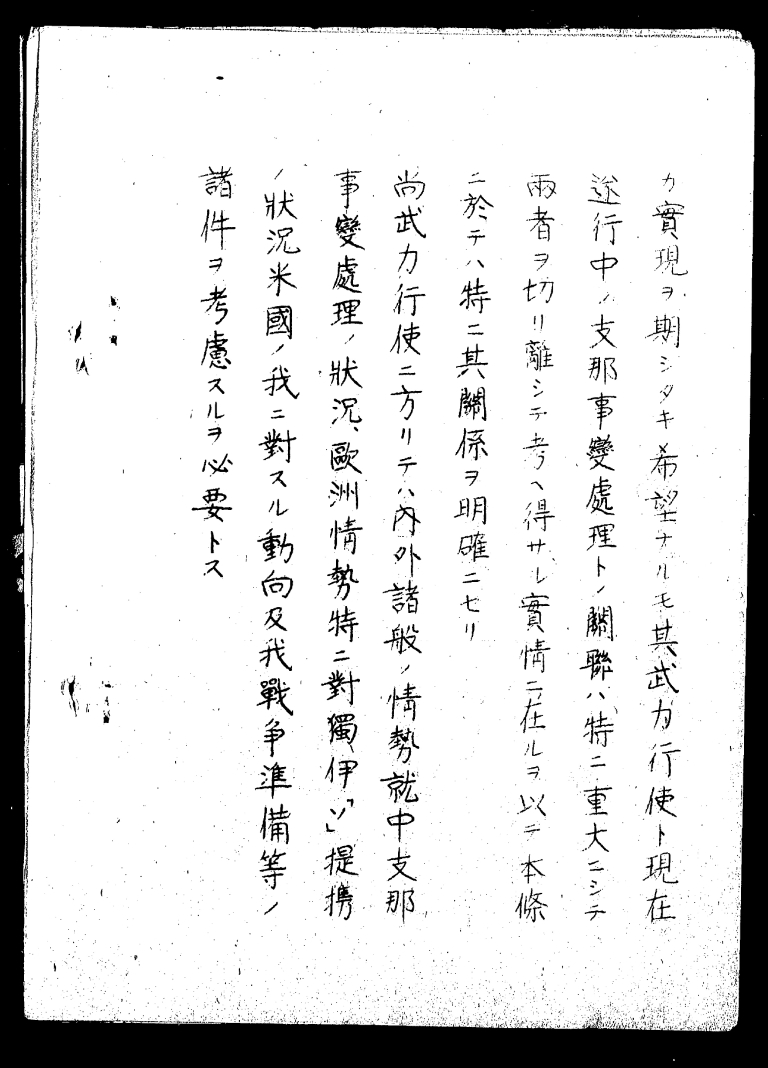 カ實現ヲ期シタキ希望ナルモ其武力行使ト現在
遂行中ノ支那事變處理トノ關聯ハ特ニ重大ニシテ
兩者ヲ切リ離シテ考ヘ得サル實情ニ在ルヲ以テ本條
ニ於テハ特ニ其關係ヲ明確ニセリ
尚武力行使ニ方リテハ內外諸般ノ情勢就中支那
事變處理ノ狀況、歐洲情勢特ニ對獨伊「ソ」提携
ノ狀況米國ノ我ニ對スル動向及我戰爭準備等ノ
諸件ヲ考慮スルヲ必要トス